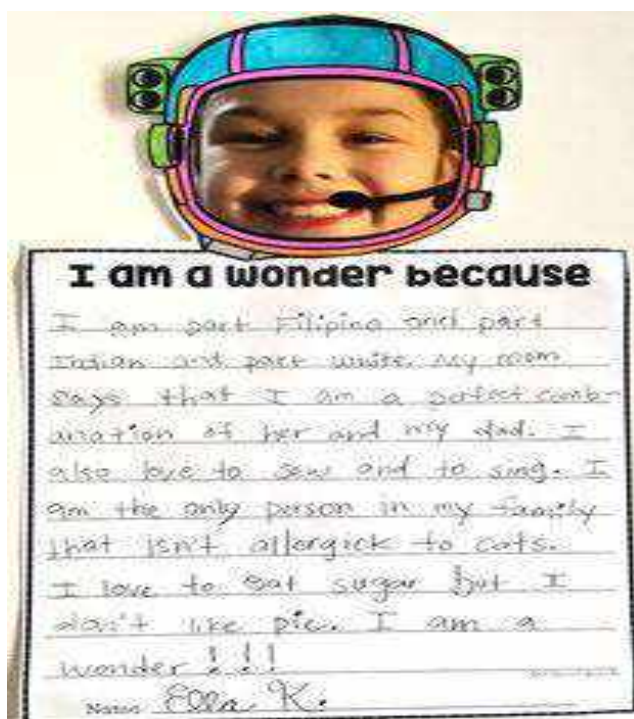 I am a wonder because
I am part Filipino and part
Indian and part white. My mom
says that I am a perfect comb-
anation of her and my dad. I
also love to sew and to sing. I
am the only person in my family
that isn't allergick to cats.
I love to eat sugar but I
don't like pie. I am a
wonder!!!
Name Ella K.